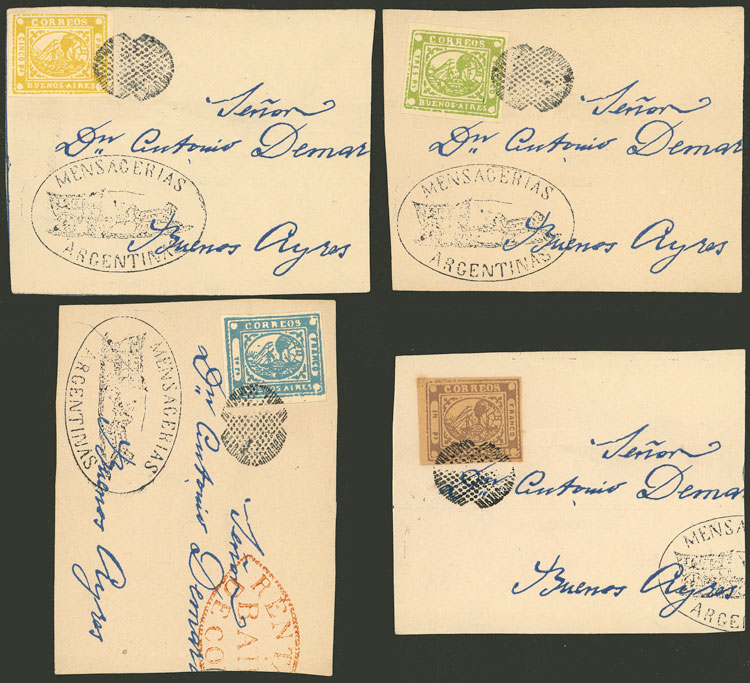 CORREOS
BUENOS-AIRES
Señor
Dn Antonio Demar
MENSAGERIAS
ARGENTINAS
Buenos Ayres
CORREOS
BUENOS-AIRES
Señor
Dn Antonio Demar
MENSAGERIAS
ARGENTINAS
Buenos Ayres
CORREOS
FRANCO
BUENOS AIRES
MENSAGERIAS
ARGENTINAS
Señor
Dn Antonio Demar
Buenos Ayres
RENT
BAI
ECO
CORREOS
FRANCO
Señor
Dn Antonio Demar
MENSA
ARGEN
Buenos Ayres